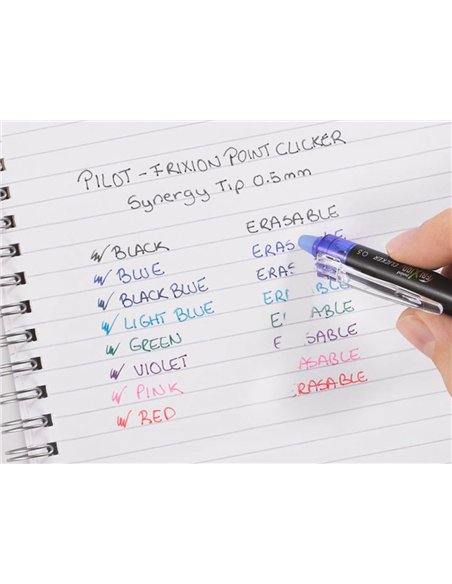 PILOT - FRIXION POINT CLICKER
Synergy Tip 0.5mm
ERASABLE
BLACK ERAS
BLUE ERAS BLE
BLACK BLUE ER ABLE
LIGHT BLUE E SABLE
GREEN ASABLE
VIOLET RASABLE
PINK
RED
FRIXION CLICKER 0.5